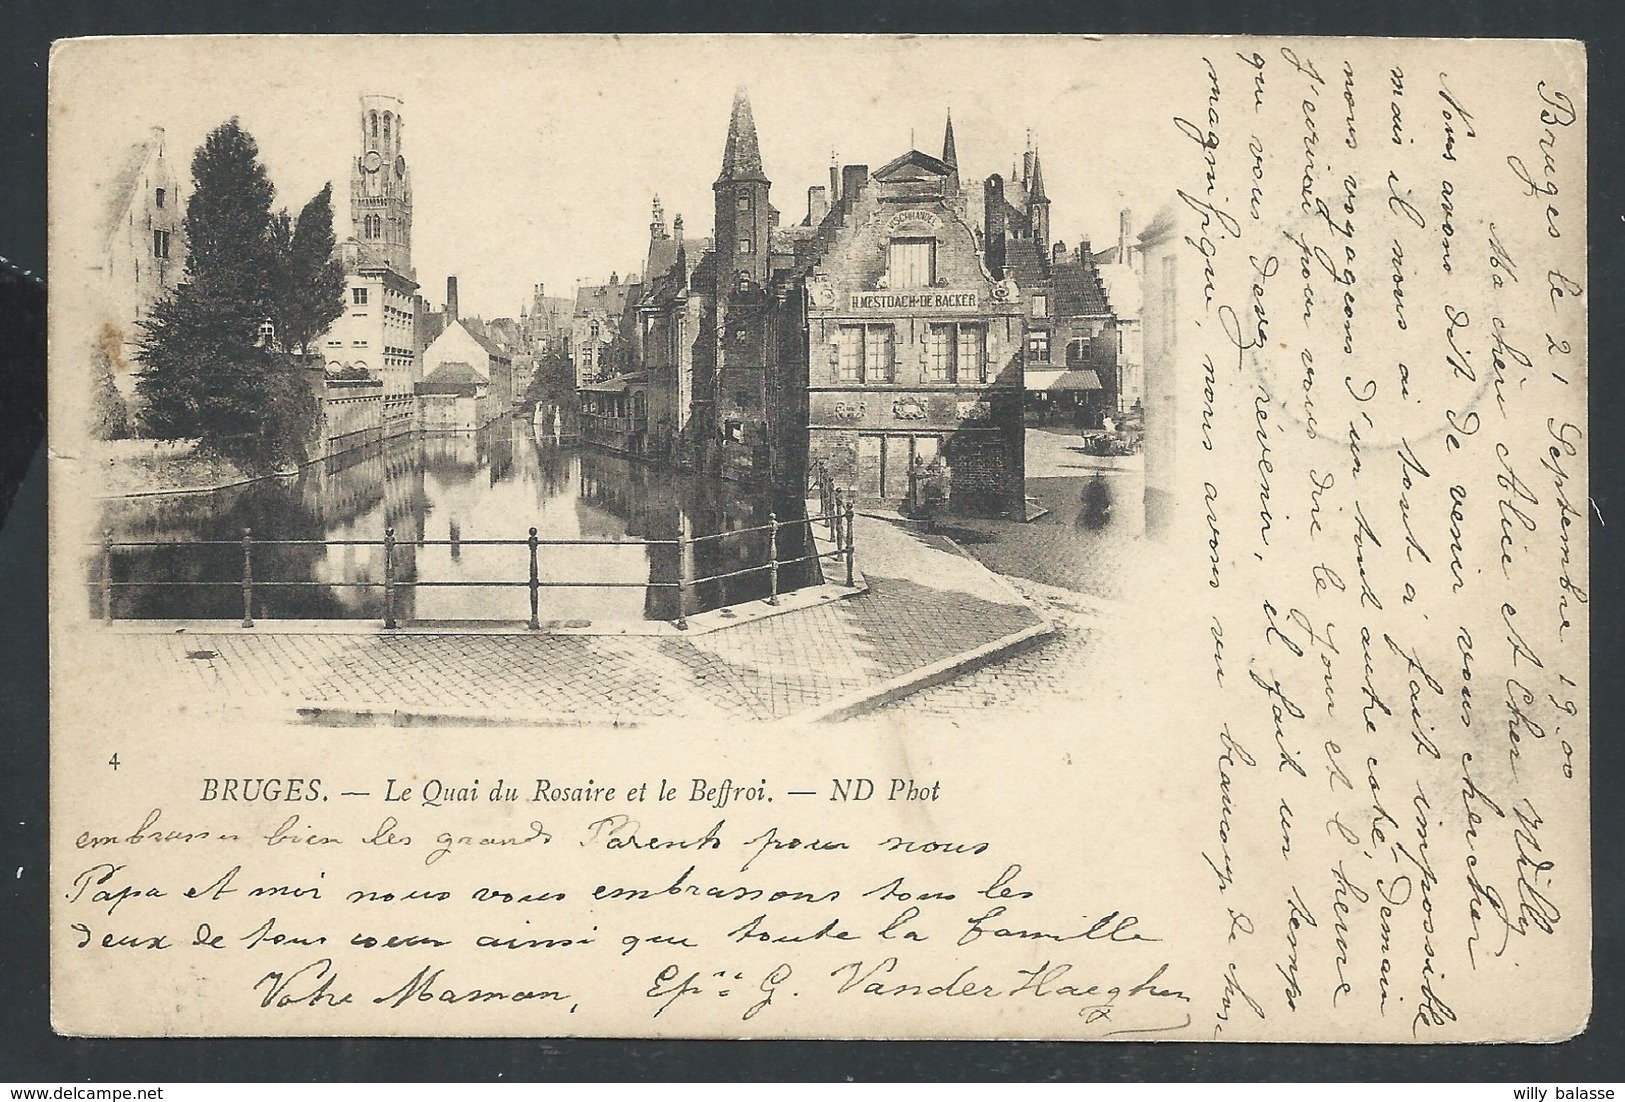 VISCHHANDEL
H. MESTDACH-DE BACKER
4
BRUGES. — Le Quai du Rosaire et le Beffroi. — ND Phot
Bruges le 21 Septembre 19.00
Ma chère Alice et Cher Willy
Nous avons dit de venir vous chercher
mais il nous ai tout a fait impossible
nous voyageons d'un tout autre coté, Demain
J'ecrirai pour vous dire le Jour et l'heure
que vous devez révenir, il fait un temps
magnifique, nous avons vu beaucoup de chose
embrasser bien les grands Parents pour nous
Papa et moi nous vous embrassons tous les
deux de tous coeur ainsi que toute la famille
Votre Maman, Epse G. VanderHaeghen
willy balasse